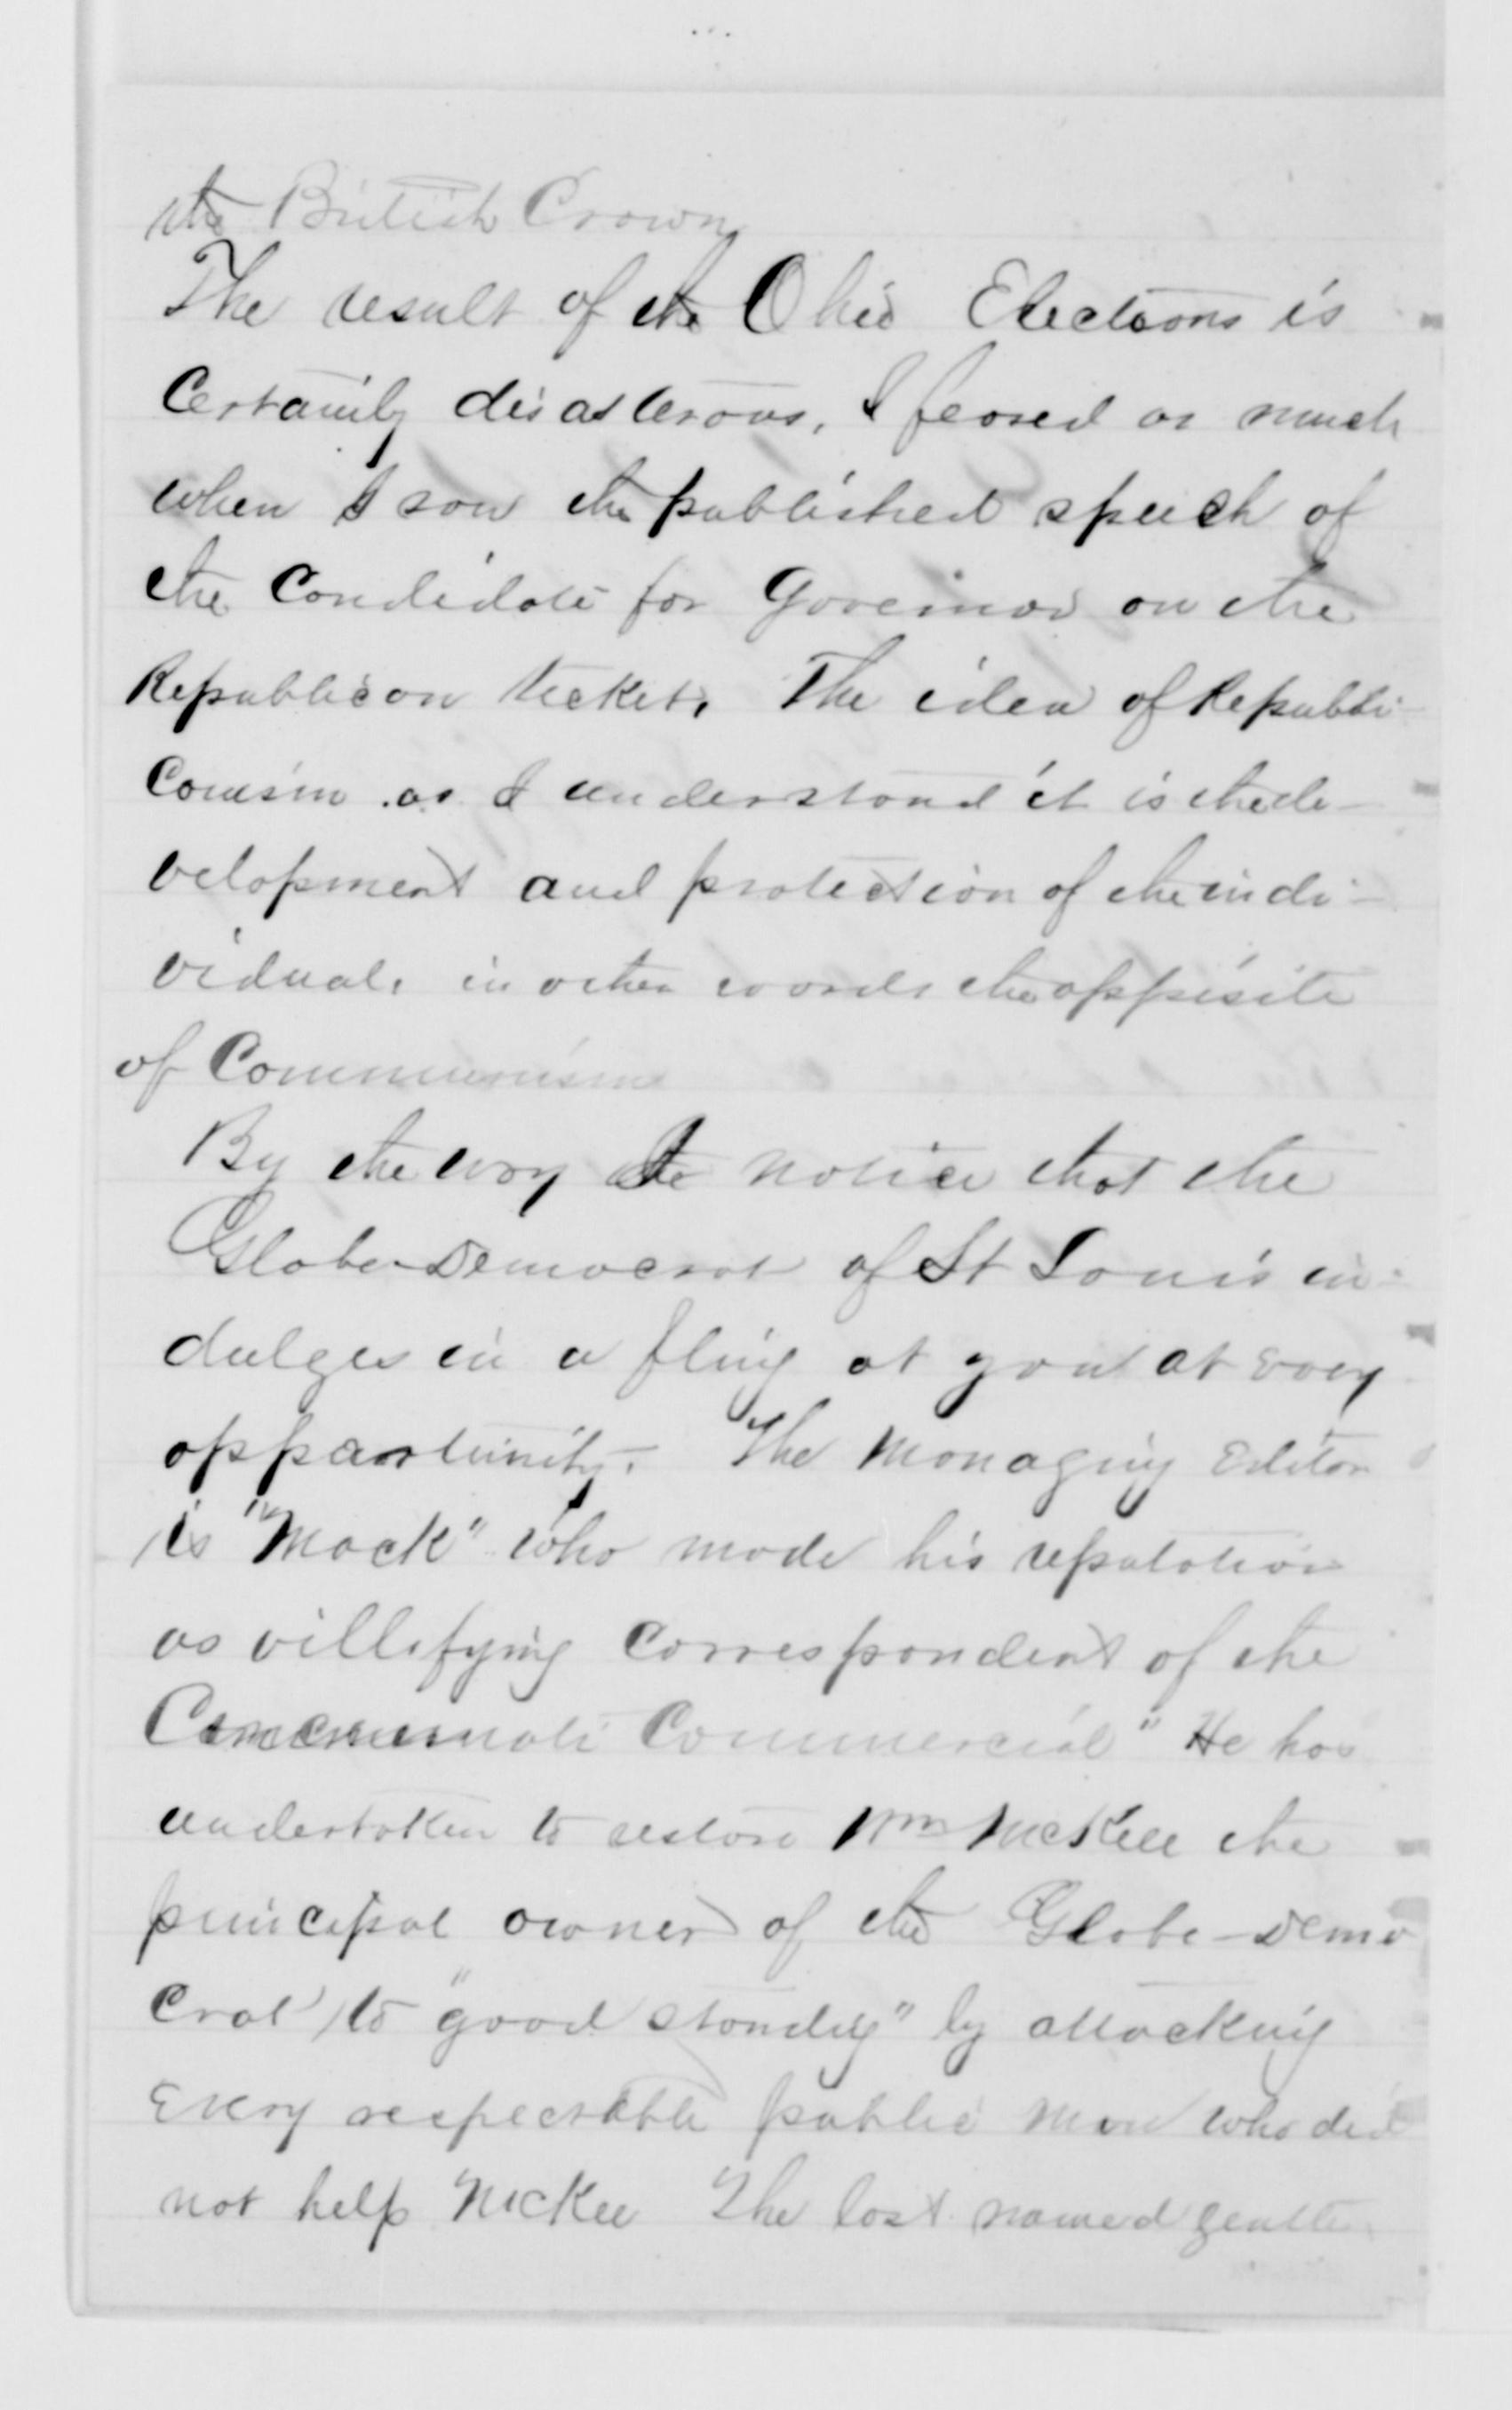 the British Crown
The result of the Ohio Elections is
Certainly disasterous. I feared as much
when I saw the published speech of
the Candidate for Governor on the
Republican ticket. The idea of Republi-
canism as I understand it is the de-
velopment and protection of the indi-
vidual. in other words the opposite
of Communism
By the way I notice that the
Globe-Democrat of St Louis in-
dulges in a fling at you at every
opportunity. The managing Editor
is "Mack" who made his reputation
as villifying correspondent of the
Cincinnati Commercial" He has
undertaken to restore Wm McKee the
principal owner of the Globe-Demo
crat to "good standing" by attacking
Every respectable public man who did
not help McKee The last named gentle